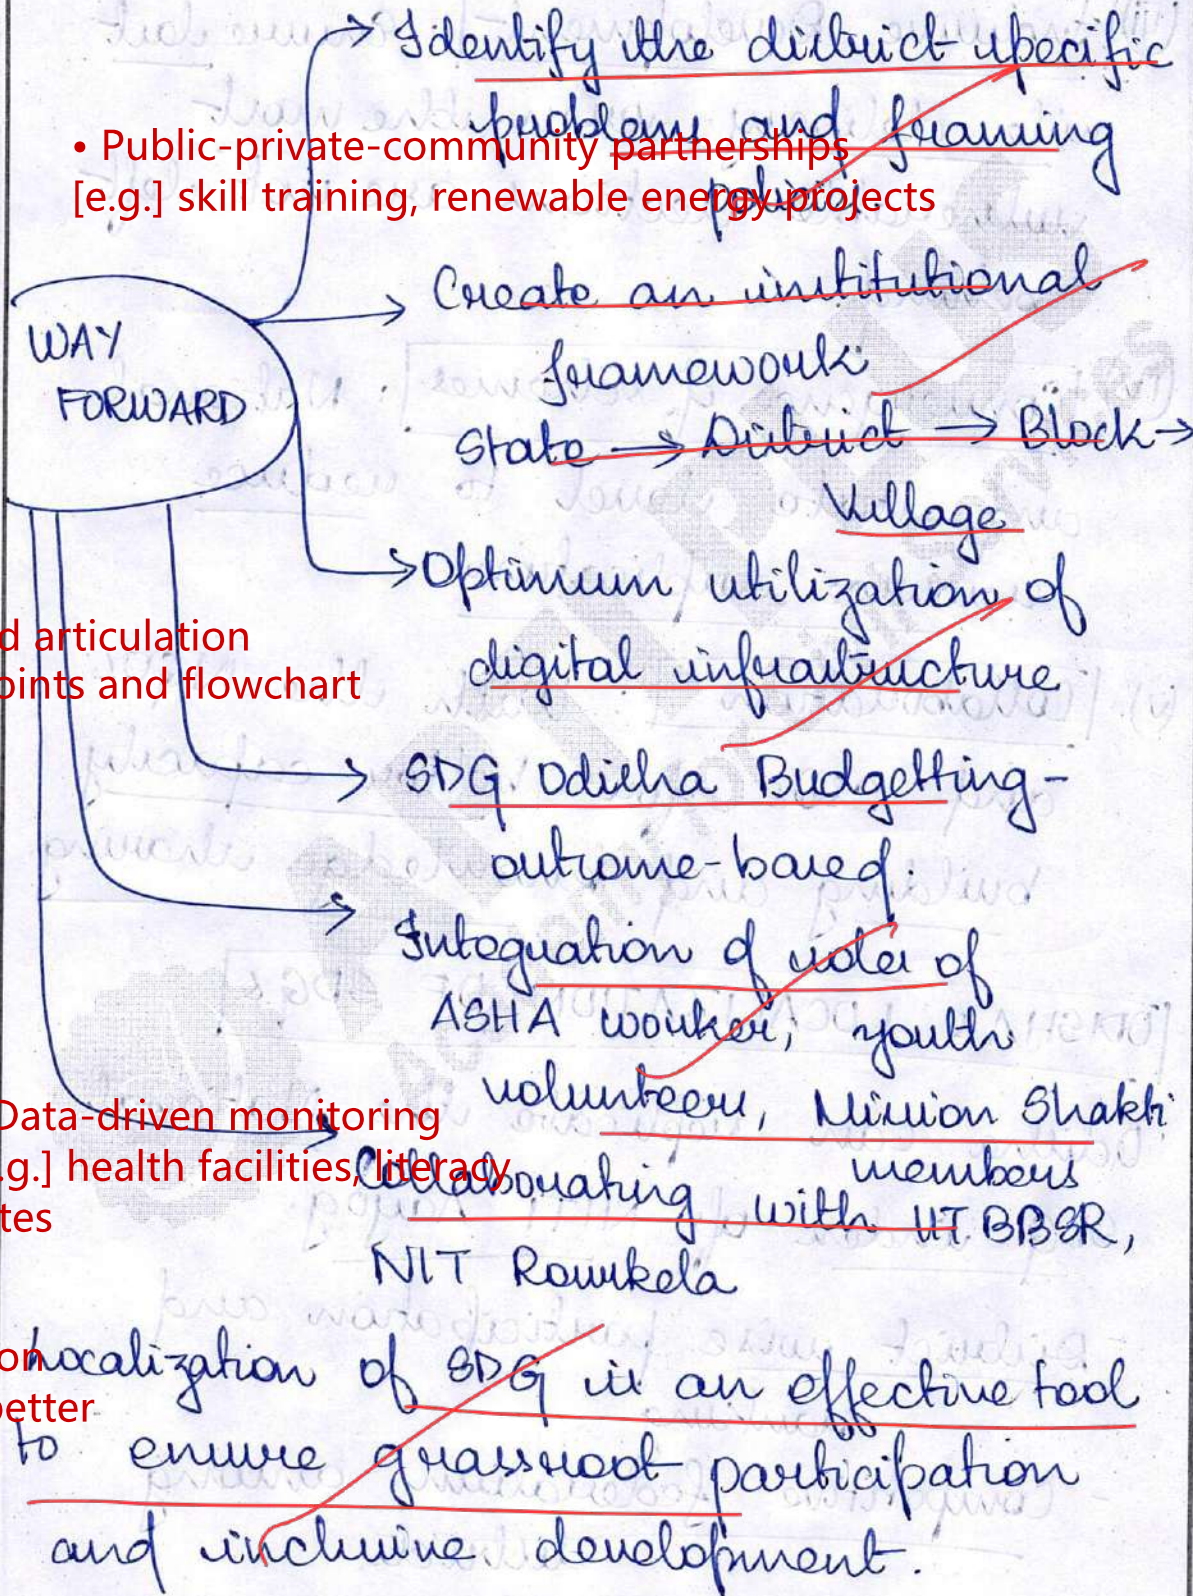 Identify the district specific
problems and framing
• Public-private-community partnerships
[e.g.] skill training, renewable energy projects
policies.
Create an institutional
framework
WAY
FORWARD
State → District → Block →
Village
Optimum utilization of
digital infrastructure
d articulation
oints and flowchart
SDG Odisha Budgetting -
outcome-based.
Integration of roles of
ASHA worker, youth
volunteers, Mission Shakti
members
Data-driven monitoring
.g.] health facilities, literacy
tes
Collaborating with IIT BBSR,
NIT Rourkela
on
Localization of SDG is an effective tool
better
to ensure grassroot participation
and inclusive development.